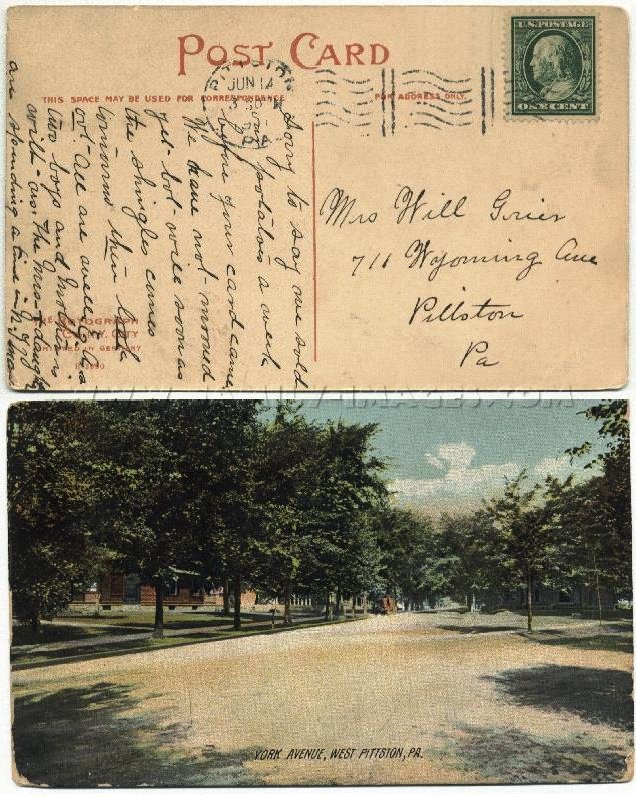 POST CARD
THIS SPACE MAY BE USED FOR CORRESPONDENCE
FOR ADDRESS ONLY.
U.S. POSTAGE
ONE CENT
JUN 14
Sorry to say we sold
our potatoes a week
before your card came
We have not moved
yet but will soon as
the shingles comes
All are well
two boys and
with us. The
are spending a time
Mrs Will Grier
711 Wyoming Ave
Pittston
Pa
CITY
IN GERMANY
YORK AVENUE, WEST PITTSTON, PA.